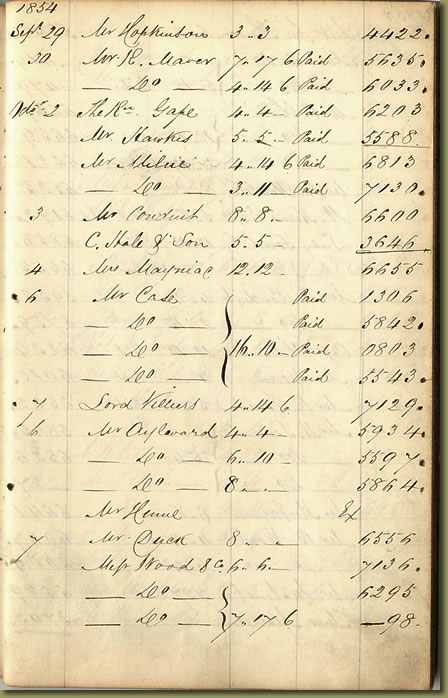 1854
Sept 29 Mr Hopkinson 3..3 4422.
30 Mr K. Maver 7..17 6 Paid 5635.
— Do — 4..14 6 Paid 6033.
2 The Gape 4..4 — Paid 6203
Mr Hawkes 5..5 — Paid 5588.
Mr Milne 4..14 6 Paid 6813
— Do — 3..11 — Paid 7130.
3 Mr Conduit 8..8 — 6600
C. Hale & Son 5..5 — 3646
4 Mrs Mayniac 12..12 — 6655
6 Mr Case Paid 1306
— Do — Paid 5842.
— Do — 16..10 — Paid 0803
— Do — Paid 5543.
7 Lord Villiers 4..14 6 7129.
6 Mr Aylward 4..4 — 5934.
— Do — 6..10 — 5597.
— Do — 8..— 5864.
Mr Hume Ex
7 Mr Duck 8..— 6556
Messrs Wood & Co 6..6 — 7136.
— Do — 6295
— Do — 7..17 6 —98.